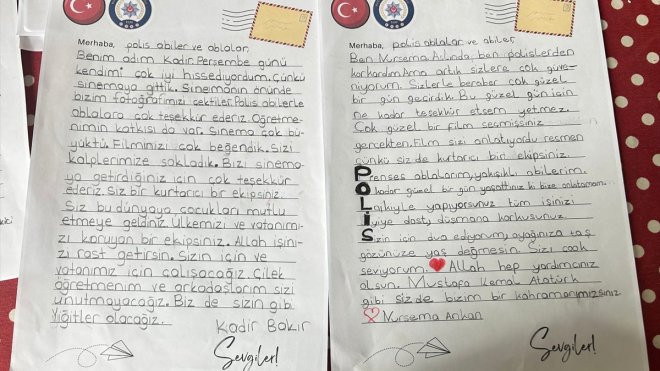 Merhaba, polis abiler ve ablalar.
Benim adım Kadir. Perşembe günü
kendimi çok iyi hissediyordum. Çünkü
sinemaya gittik. Sinemanın önünde
bizim fotoğrafımızı çektiler. Polis abilerle
ablalara çok teşekkür ederiz. Öğretme-
nimin katkısı da var. Sinema çok bü-
yüktü. Filminizi çok beğendik. Sizi
kalplerimize sakladık. Bizi sinema-
ya getirdiğiniz için çok teşekkür
ederiz. Siz bir kurtarıcı bir ekipsiniz.
Siz bu dünyaya çocukları mutlu
etmeye geldiniz. Ülkemizi ve vatanımı-
zı koruyan bir ekipsiniz. Allah işini-
zi rast getirsin. Sizin için ve
vatanımız için çalışacağız. Çilek
öğretmenim ve arkadaşlarım sizi
unutmayacağız. Biz de sizin gibi
yiğitler olacağız.
Kadir Bakır
Sevgiler!
Merhaba, polis ablalar ve abiler.
Ben Nursema. Aslında ben polislerden
korkardım. Ama artık sizlere çok güve-
niyorum. Sizlerle beraber çok güzel
bir gün geçirdik. Bu güzel gün için
ne kadar teşekkür etsem yetmez.
Çok güzel bir film seçmişsiniz
gerçekten. Film sizi anlatıyordu resmen
çünkü siz de kurtarıcı bir ekipsiniz.
Prenses ablalarım, yakışıklı abilerim.
O kadar güzel bir gün yaşattınız ki bize anlatamam.
Layıkıyle yapıyorsunuz tüm işinizi
İyiye dost, düşmana korkusunuz.
Sizin için dua ediyorum, ayağınıza taş
gözünüze yaş değmesin. Sizi çook
seviyorum. Allah hep yardımcınız
olsun. Mustafa Kemal Atatürk
gibi siz de bizim bir kahramanımızsınız
Nursema Arıkan
Sevgiler!